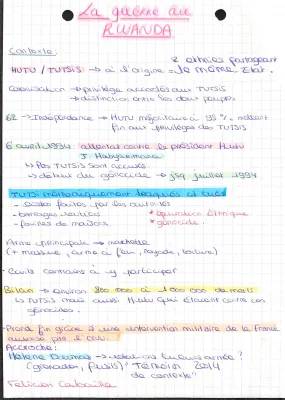 La guerre au
RWANDA
Contexte:
2 ethnies partageant
HUTU / TUTSIS → à l'origine = le même Etat.
Colonisation → privilège accordés aux TUTSIS
→ distinction entre les deux peuples
62 → Indépendance → HUTU majoritaire à 95%, mettent
fin aux privilèges des TUTSIS
6 avril 1994 attentat contre le président Hutu
J. Habyarimana
↳ Les TUTSIS sont accusés
↳ début du génocide → jsq juillet 1994
TUTSIS méthodiquement traqués et tués
- listes faites par les autorités
- barrages routiers
- fouilles de maisons
* épuration éthnique
* génocide
Arme principale → machette
(+ massue, arme à feu, noyade, torture)
- Civils contraints à y participer
Bilan → environ 800 000 à 1 000 000 de morts
↳ TUTSIS mais aussi Hutu qui étaient contre ces
génocides.
- Prend fin grâce à une intervention militaire de la France
par l'ONU.
Accroche:
Hélène
(grenades, fusils) 2014
de contexte
Félicien